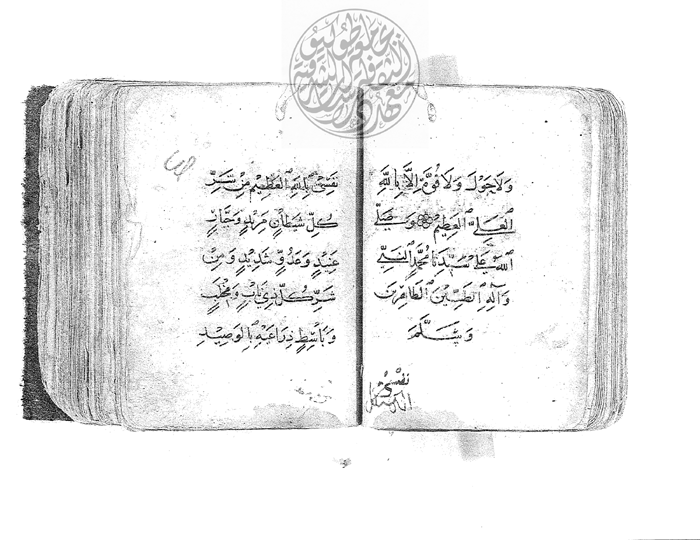 وَلَا حَوْلَ وَلَا قُوَّةَ إِلَّا بِاللَّهِ
الْعَلِيِّ الْعَظِيمِ وَصَلَّى
اللَّهُ عَلَى سَيِّدِنَا مُحَمَّدٍ النَّبِيِّ
وَآلِهِ الطَّيِّبِينَ الطَّاهِرِينَ
وَسَلَّمَ
نَفْسِي
نَفْسِي بِاللَّهِ الْعَظِيمِ مِنْ شَرِّ
كُلِّ شَيْطَانٍ مَرِيدٍ وَجَبَّارٍ
عَنِيدٍ وَعَدُوٍّ شَدِيدٍ وَمِنْ
شَرِّ كُلِّ ذِي نَابٍ وَمِخْلَبٍ
وَبَاسِطٍ ذِرَاعَيْهِ بِالْوَصِيدِ